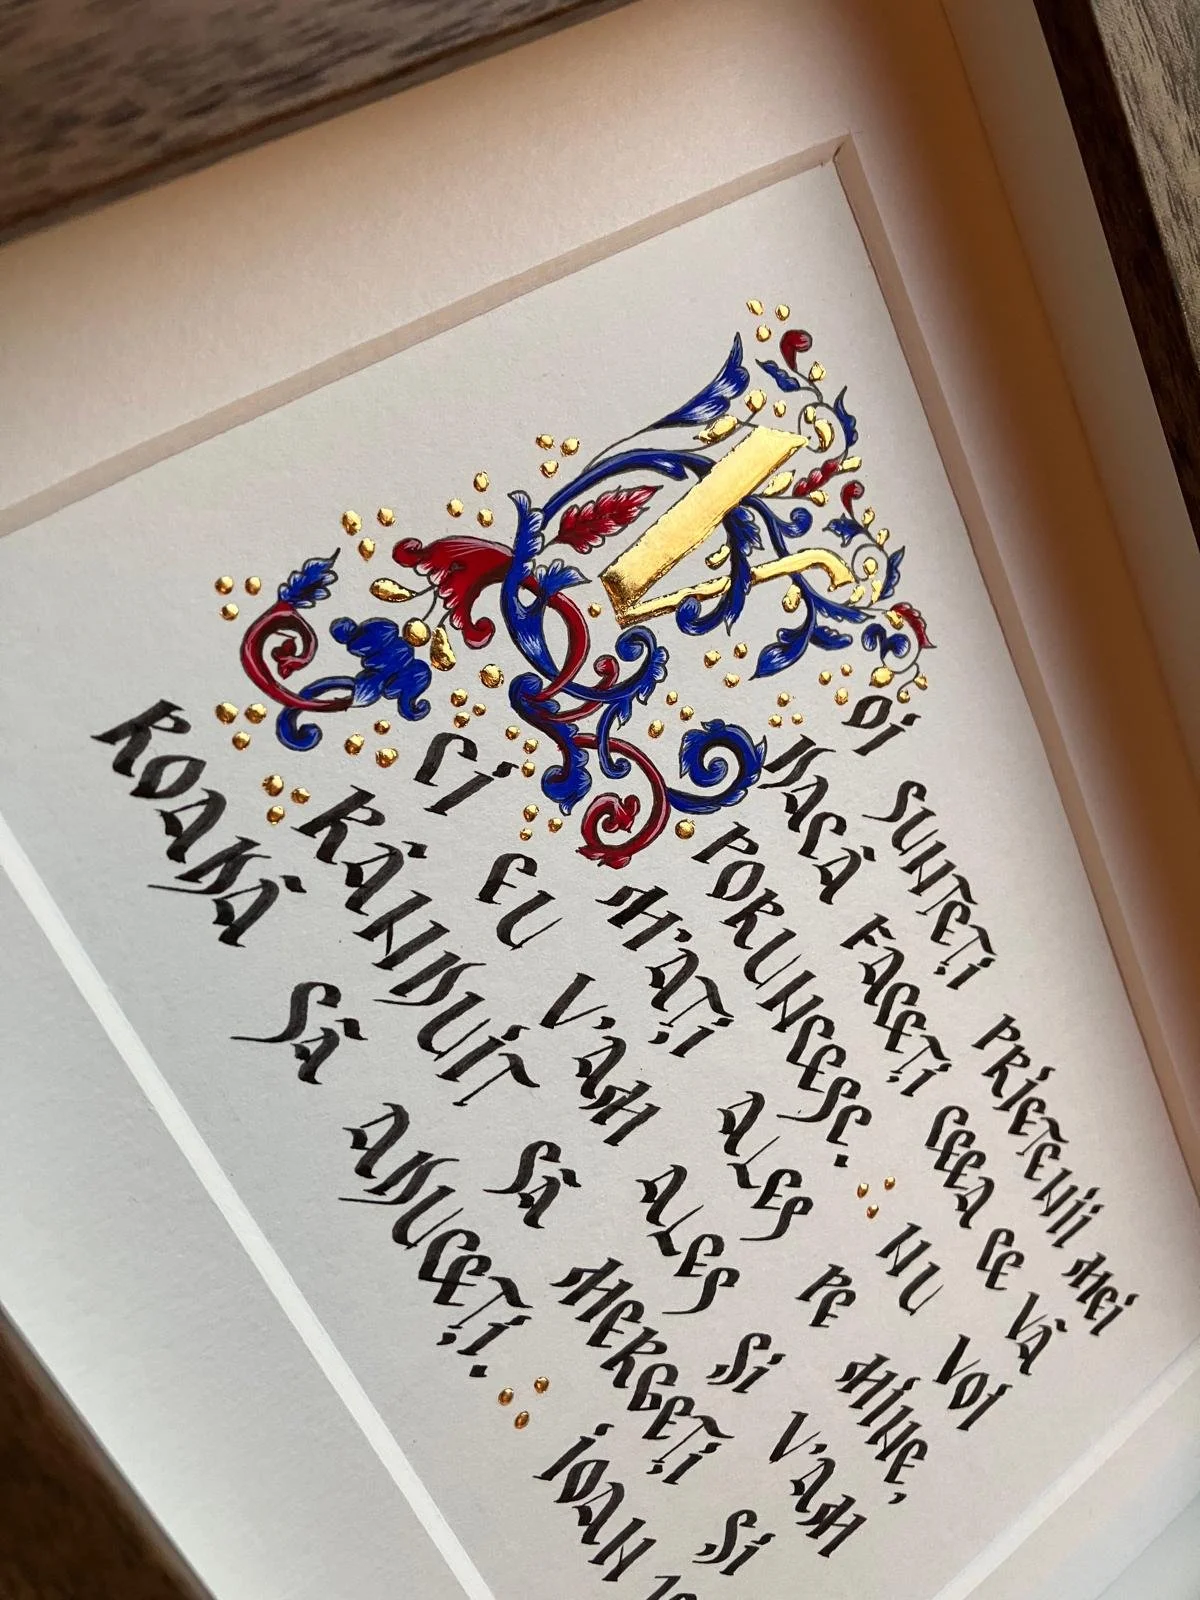 VOI SUNTEȚI PRIETENII MEI
DACĂ FACEȚI CEEA CE VĂ
PORUNCESC. NU VOI
M'AȚI ALES PE MINE,
CI EU V'AM ALES ȘI V'AM
RÂNDUIT SĂ MERGEȚI ȘI
ROADĂ SĂ ADUCEȚI.
IOAN